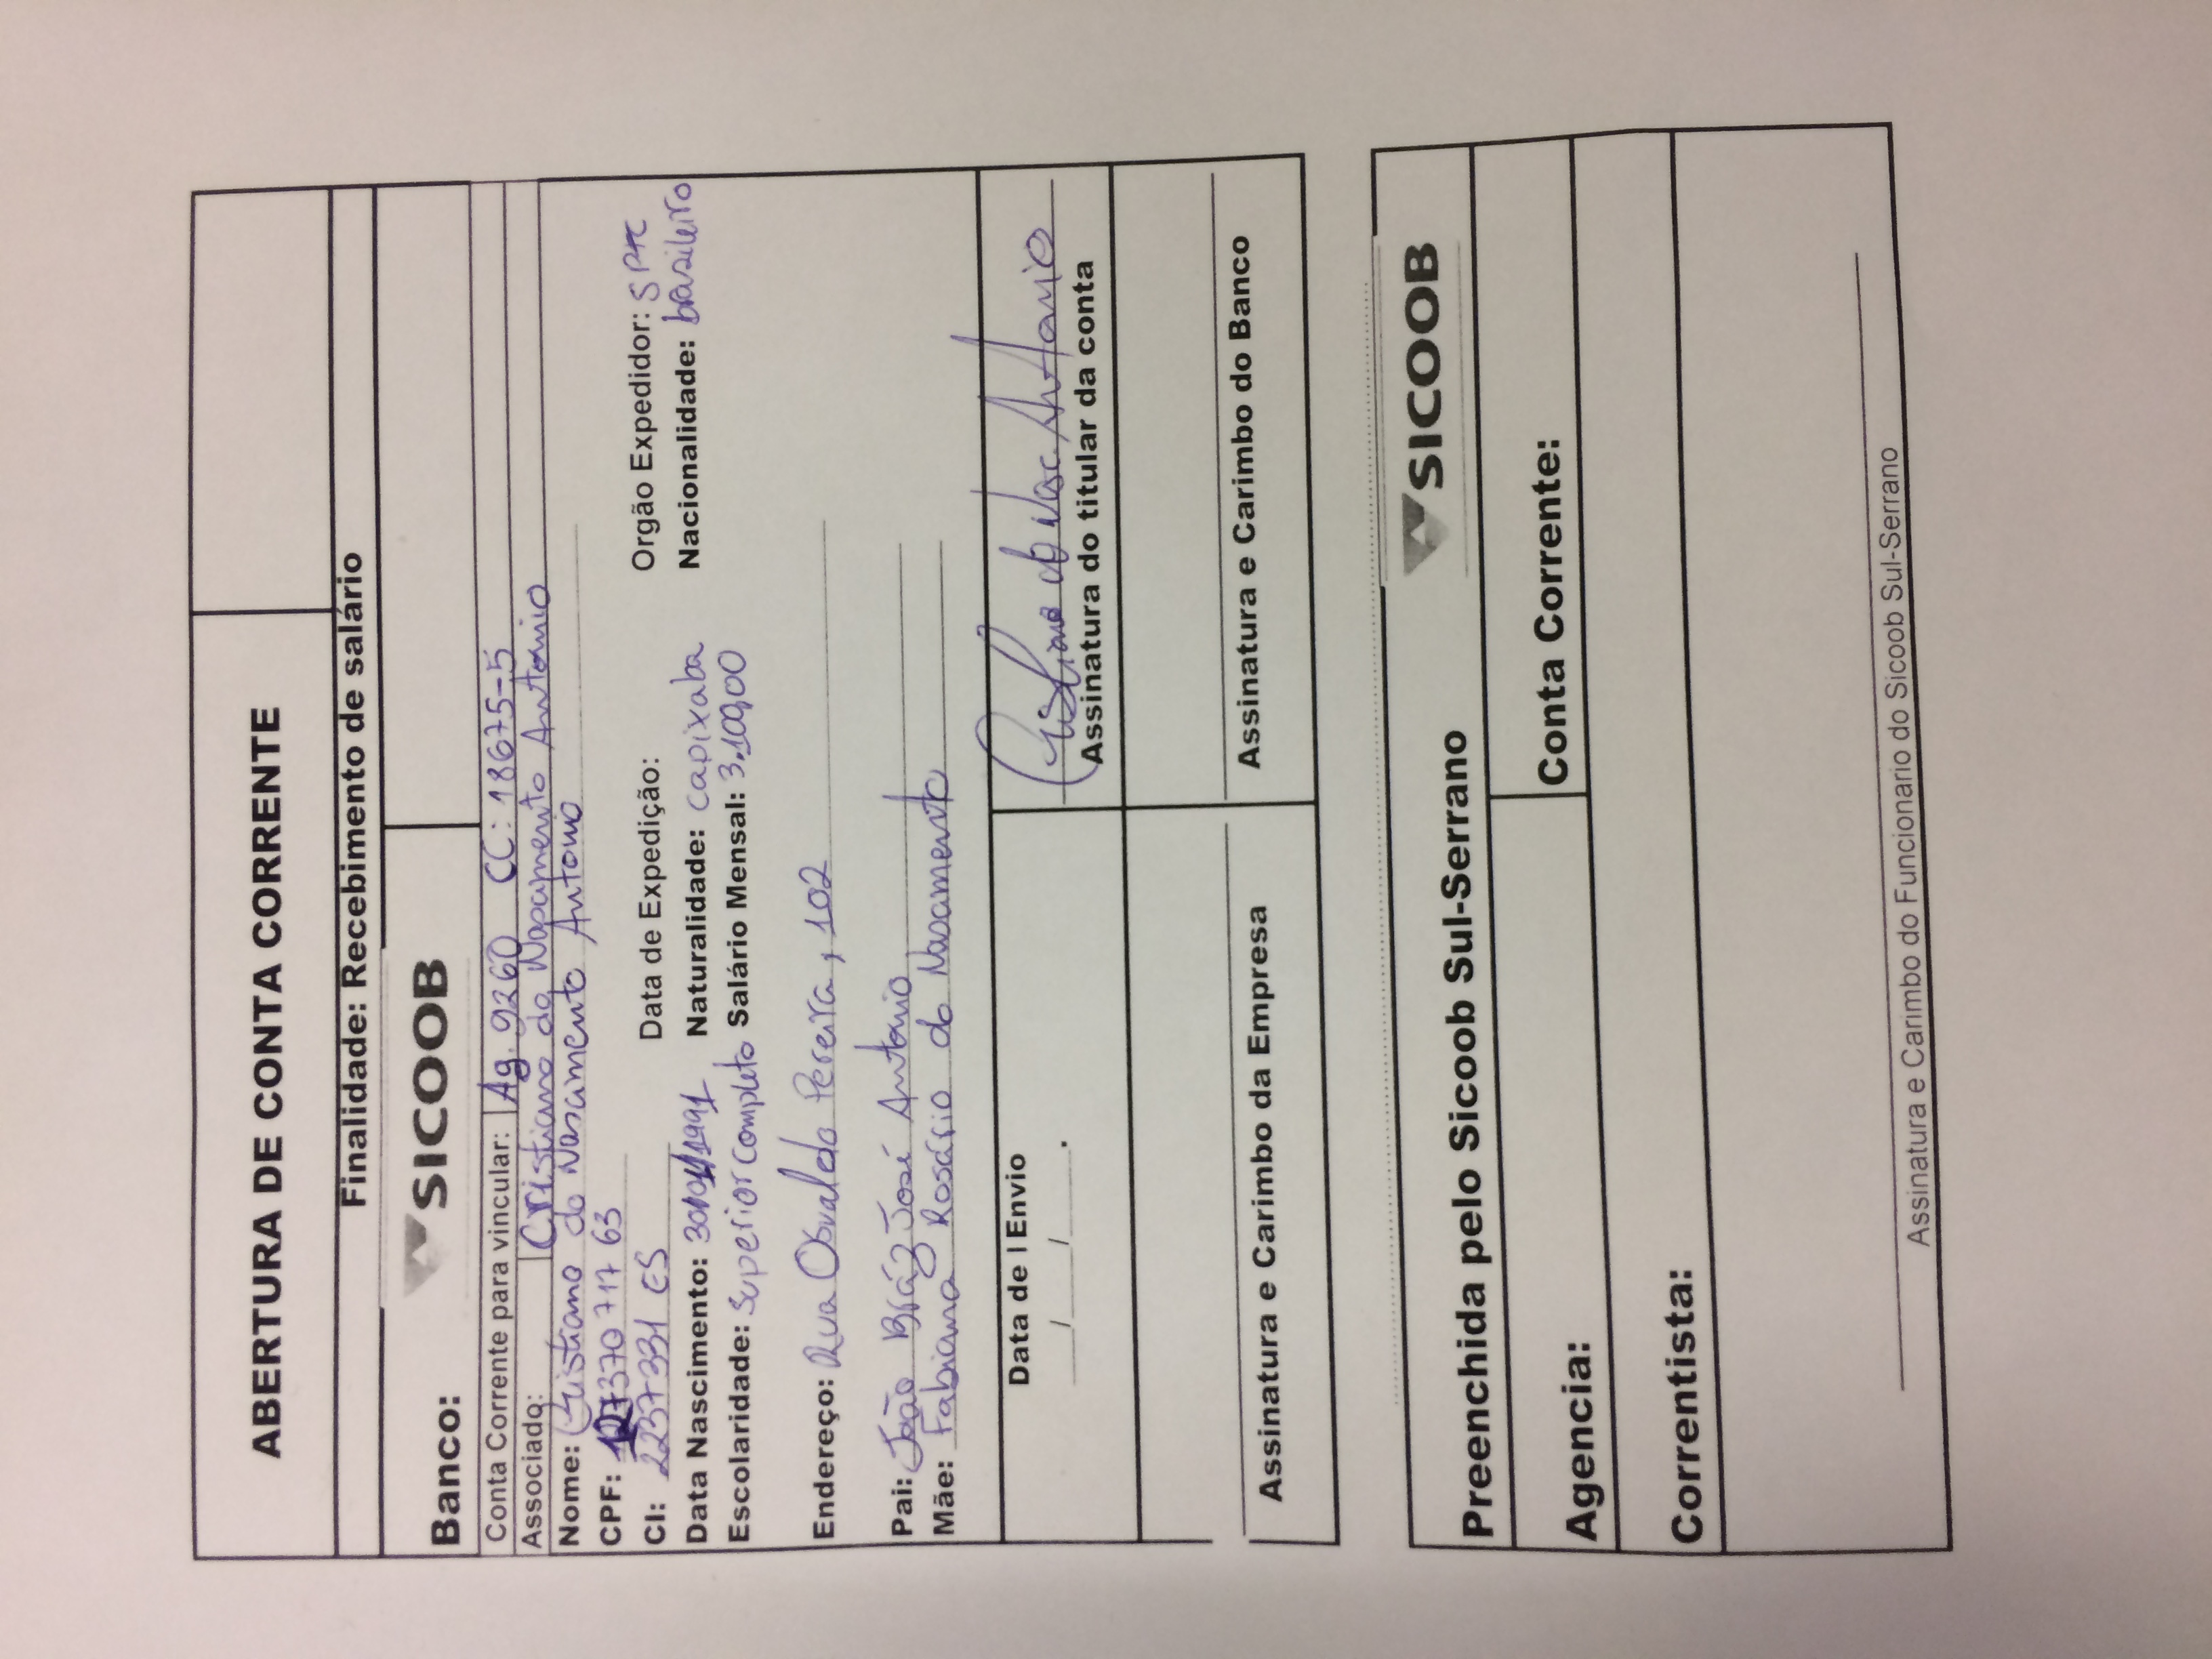 ABERTURA DE CONTA CORRENTE
Finalidade: Recebimento de salário
Banco: SICOOB
Conta Corrente para vincular: Ag. 9260 CC: 18675-5
Associado: Cristiano do Nascimento Antonio
Nome: Cristiano do Nascimento Antonio
CPF: 127370 717 63
CI: 2237331 ES Data de Expedição: Orgão Expedidor: SPTC
Data Nascimento: 30/01/1991 Naturalidade: capixaba Nacionalidade: brasileiro
Escolaridade: Superior completo Salário Mensal: 3.100,00
Endereço: Rua Osvaldo Pereira, 102
Pai: João Bráz José Antonio
Mãe: Fabiana Rosário do Nascimento
Data de | Envio
___/____/_____.
Cristiano do Nasc. Antonio
Assinatura do titular da conta
Assinatura e Carimbo da Empresa Assinatura e Carimbo do Banco
Preenchida pelo Sicoob Sul-Serrano SICOOB
Agencia: Conta Corrente:
Correntista:
Assinatura e Carimbo do Funcionario do Sicoob Sul-Serrano